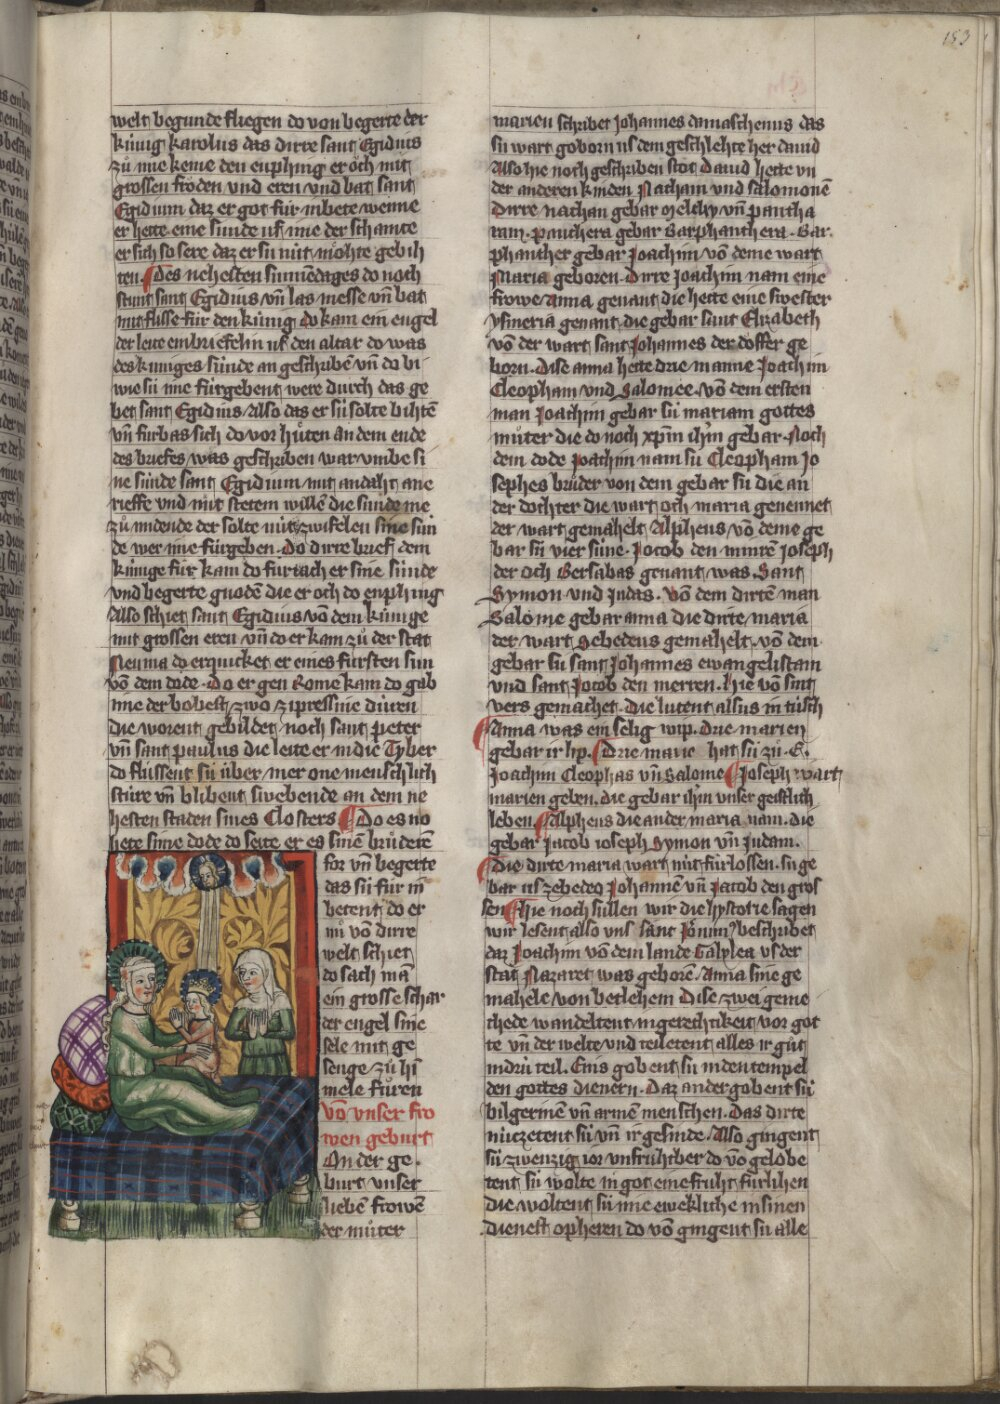 153
welt begunde fliegen do von begerte der
künig karolus das dirre sant Egidius
zů ime keme den enphing er öch mit
grossen fröden und eren und bat sant
Egidium daz er got für in bete wenne
er hette eine sünde uf ime der schamte
er sich so sere daz er sü nüt möhte gebih
ten. Des nehesten sunnēdages do noch
stunt sant Egidius vn̄ las messe vn̄ bat
mit flisse für den künig do kam ein engel
der leite ein briefelin uf den altar do was
des küniges sünde an geschribē vn̄ do bi
wie sü ime fürgeben were durch das ge
bet sant Egidius Also das er sü solte bihtē
vn̄ fürbas sich do vor hůten an dem ende
des briefes was geschriben war vmbe si
ne sünde sant Egidium mit andaht ane
rieffe und mit stetem willē die sünde me
zů midende der solte nüt zwifelen sine sün
de wer ime fürgeben. Do dirre brief dem
künige für kam do furiach er sine sünde
und begerte gnodē die er och do enphing
Also schiet sant Egidius vō dem künige
mit grossen eren vn̄ do er kam zů der stat
Neuma do erquicket er eines fürsten sun
vō dem dode. Do er gen Rome kam do gab
ime der bobest zwo zipressine düren
die worent gebildet noch sant peter
vn̄ sant paulus die leite er in die Tyber
do flussent sü über mer one menschlich
stüre vn̄ blibent swebende an dem ne
hesten staden sines Closters Do es no
hete sime dode do seite er es sinē brüderē
for vn̄ begerte
das sü für in
betent do er
nü vō dirre
welt schiet
do sach mā
ein grosse schar
der engel sine
sele mit ge
senge zů hi
mele fůren
Vō unser fro
wen geburt
An der ge
burt unser
lieben frowē
der můter
marien schribet Johannes damaschenus das
sü wart geborn us dem geschlehte her dauid
Also hie noch geschriben stot Dauid hette vn
der anderen kinden Natham und salomonē
Dirre nathan gebar Melchy vn̄ pantha
ram. panthera gebar Barphanthera. Bar
phanther gebar Joachim vō deme wart
Maria geboren. Dirre Joachim nam eine
frowe Anna genant die hette eine swester
ysmeria genant die gebar sant Elizabeth
vō der wart sant Johannes der döffer ge
born. Dise anna hette drie manne Joachim
Cleopham und Salomee. vō dem ersten
man Joachim gebar sü mariam gottes
můter die do noch xp̄m ih̄m gebar. Noch
dem dode Joachim nam sü Cleopham Jo
sephes brůder von dem gebar sü die an
der dochter die wart och maria genennet
der wart gemahelt Alpheus vō deme ge
bar sü vier süne. Jocob den minrē Joseph
der och Bersabas genant was. Sant
Symon und Judas. Vō dem dirtē man
Salome gebar anna die dirte maria
der wart Zebedeus gemahelt. vō dem
gebar sü sant Johannes ewangelistam
und sant Jocob den merren. hie vō sint
vers gemachet. die lutent alsus in tütsch
Anna was ein selig wip. Drie marien
gebar ir lip. Drie manē hat sü zů. E.
Joachim Cleophas vn̄ Salome Joseph wart
marien geben. die gebar ih̄m unser geistlich
leben. Alpheus die ander maria nam. die
gebar Jacob ioseph Symon vn̄ Judam.
Die dirte maria wart nüt fürlossen. sü ge
bar us zebedeo Johannē vn̄ Jacob den gros
sen Hie noch süllen wir die hystorie sagen
wir lesent also uns sant Jōnim9 beschribet
daz Joachim vō dem lande Galylea us der
stat Nazaret was geborē. Anna sine ge
mahele von betlehem Dise zwei geme
chede wandeltent in gerechtikeit vor got
te vn̄ der welte und teiletent alles ir gůt
in drü teil. Eins gobent sü in den tempel
den gottes dienern. Daz ander gobent sü
bilgerinē vn̄ armē menschen. Das dirte
nüczetent sü vn̄ ir gesinde. Also gingent
sü zwenzig ior unfruhtber do vō gelobe
tent sü wolte in got eine fruht fürlihen
die woltent sü ime eweklliche in sinen
dienest opheren do vō gingent sü alle